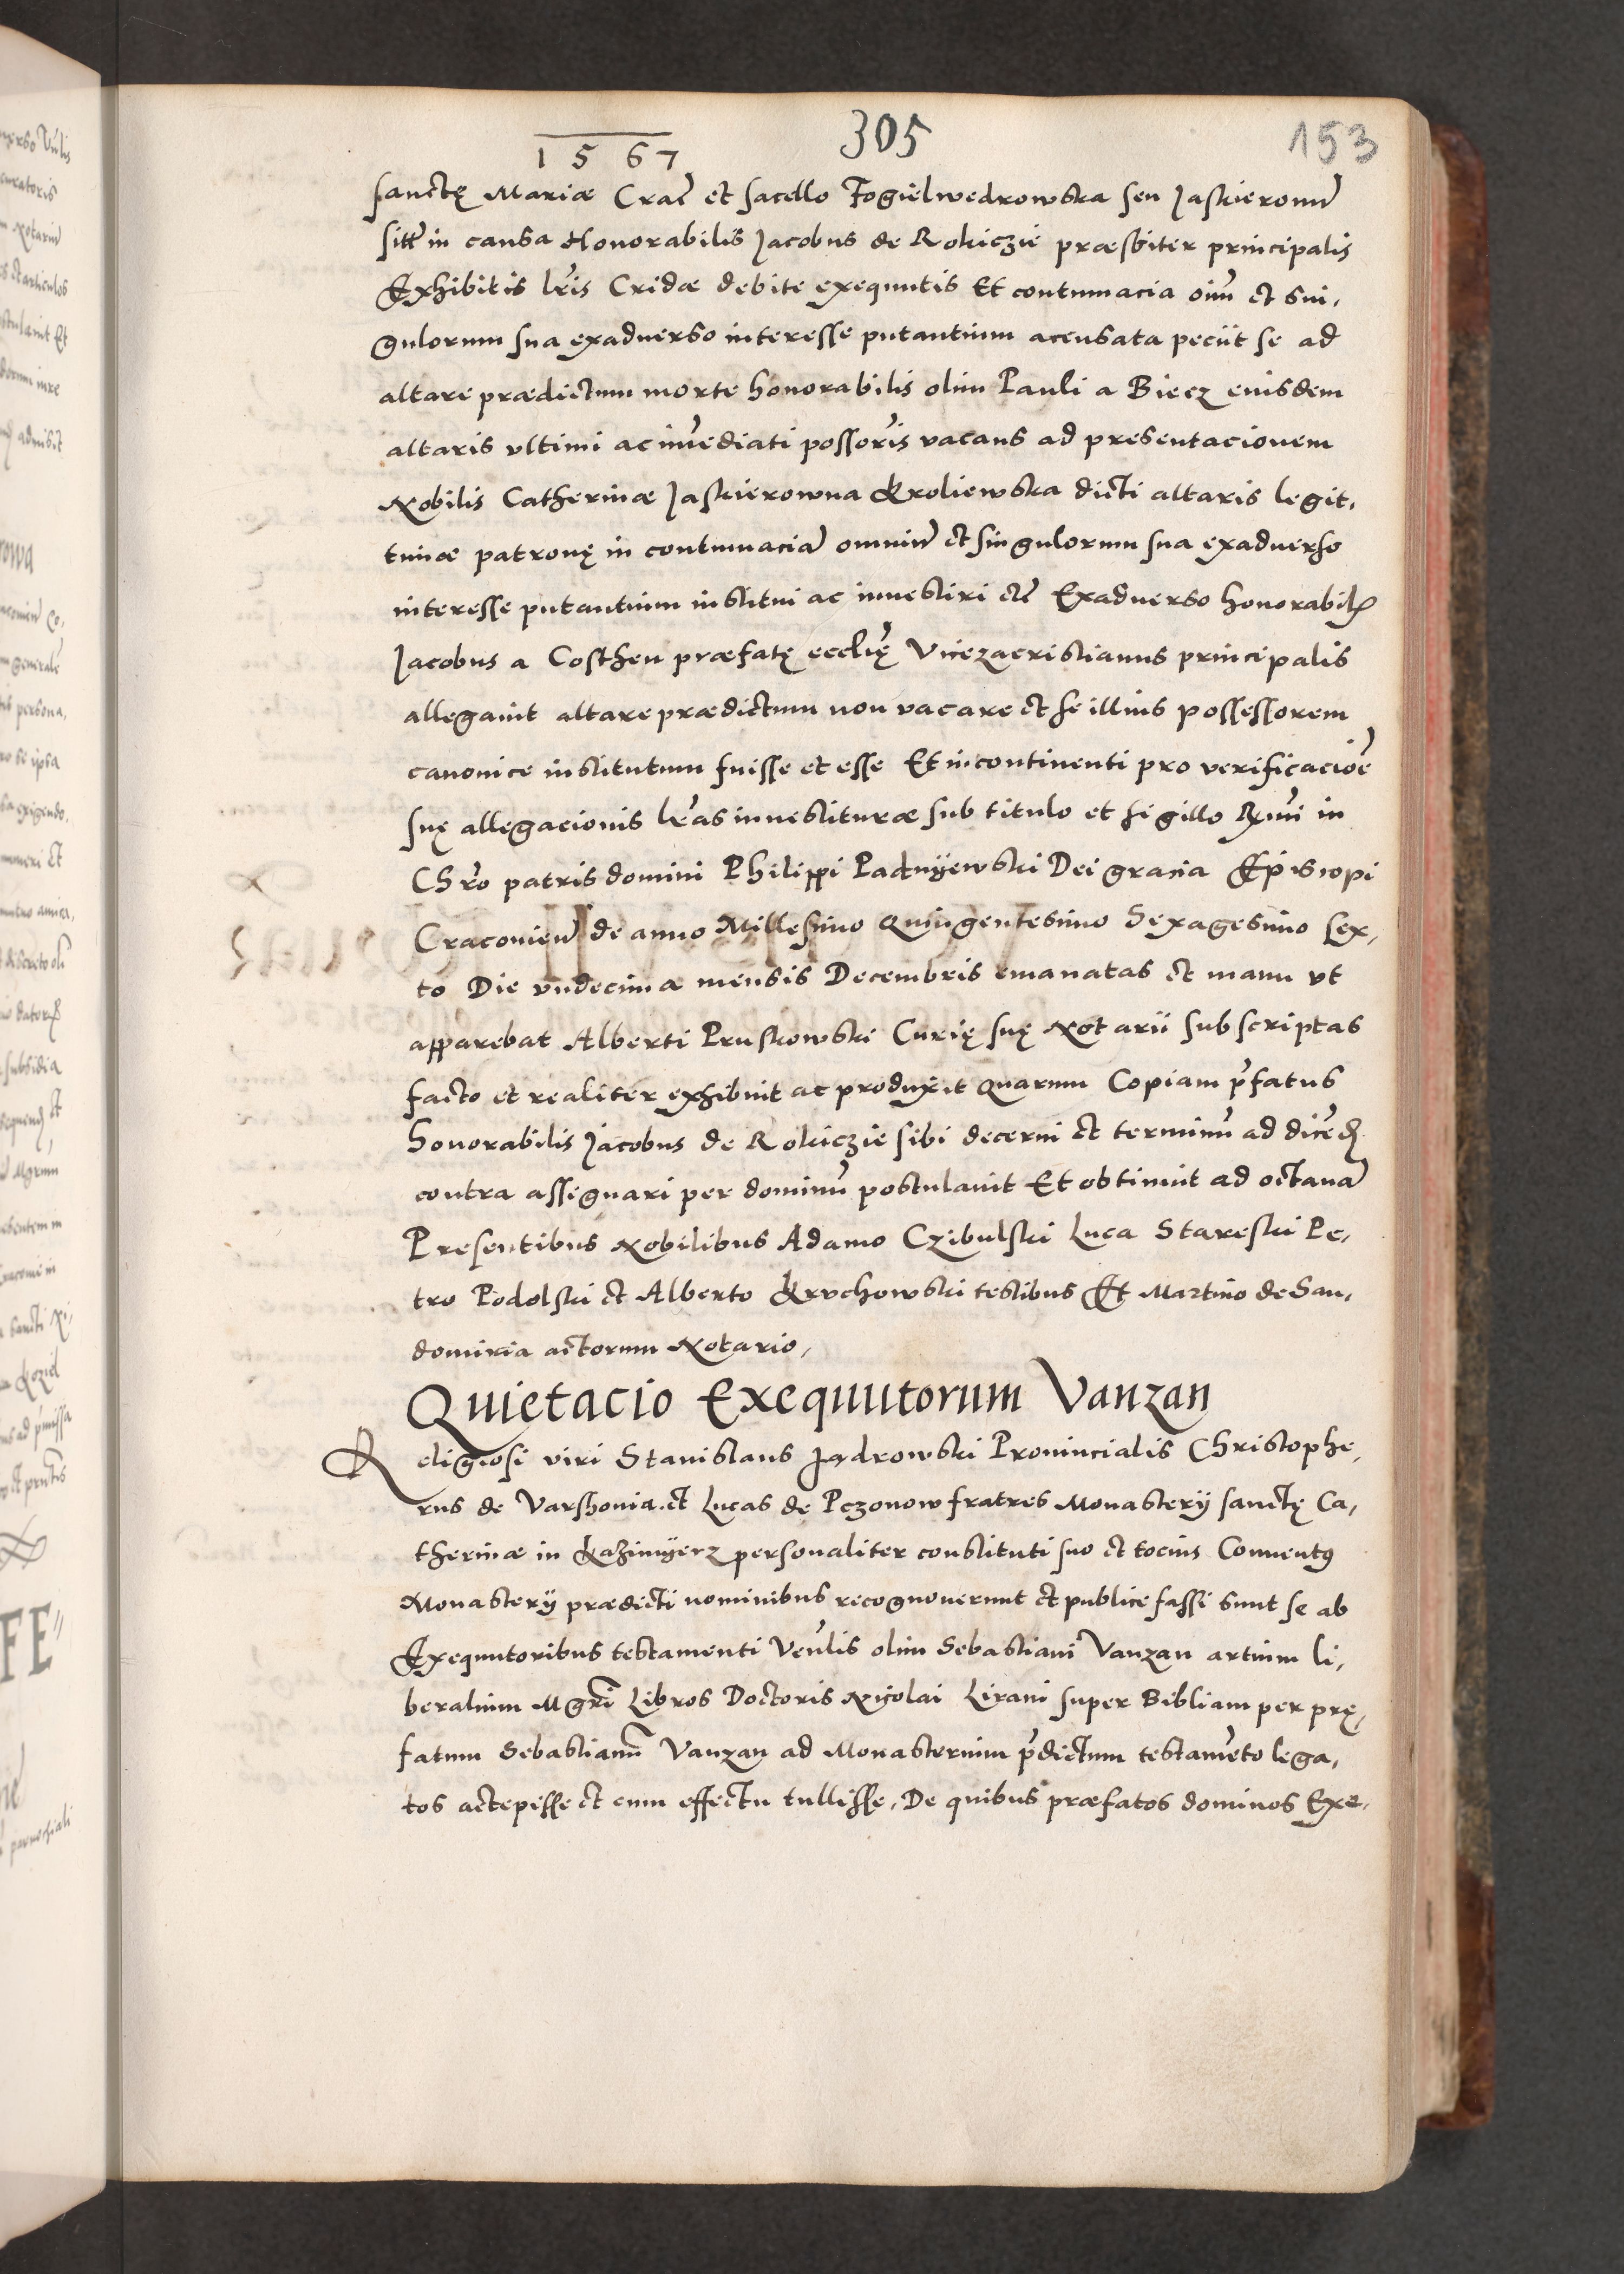 305
153
1567
sanctę Mariæ Crac̃ et sacello Fogielwedrowska seu Jaskieronũ
sitt̃ in causa Honorabilis Jacobus de Rokiczie præsbiter principalis
Exhibitis lr̃is Cridæ debite exequutis Et contumacia oĩm et sin,
gulorum sua exaduerso interesse putantium accusata peciit se ad
altare prædictum morte honorabilis olim Pauli a Biecz eiusdem
altaris vltimi ac imẽdiati possor̃is vacans ad presentacionem
Nobilis Catherinæ Jaskierowna Kroliewska dicti altaris legit,
timæ patronę in contumaciã omniũ et singulorum sua exaduerso
interesse putantium institui ac inuestiri etc̃ Exaduerso honorabil̃
Jacobus a Costhen præfatę eccliẽ Vicezacristianus principalis
allegauit altare prædictum non vacare et se illius possessorem
canonice institutum fuisse et esse Et incontinenti pro verificaciõe
suę allegacionis lr̃as inuestituræ sub titulo et sigillo Rm̃i in
Chr̃o patris domini Philippi Padnyewski Dei gracia Episcopi
Cracovien̄ de anno Millesimo Quingentesimo Sexagesimo sex,
to Die vndecimæ mensis Decembris emanatas et manu vt
apparebat Alberti Pruskowski Curię suę Notarii subscriptas
facto et realiter exhibuit ac produxit quarum Copiam p̃fatus
honorabilis Jacobus de Rokiczie sibi decerni et terminũ ad dicẽd
contra assignari per dominũ postulauit Et obtinuit ad octauã
Presentibus Nobilibus Adamo Czibulski Luca Stareski Pe,
tro Podolski et Alberto Kruchowski testibus Et Martino de San,
domiria actorum Notario,
Quietacio Exequutorum Vanzan
Religiosi viri Stanislaus Jadrowski Prouincialis Christophe,
rus de Varshouia et Lucas de Pczonow fratres Monastery sanctę Ca,
therinæ in Kazimyerz personaliter constituti suo et tocius Conuentus
Monastery prædicti nominibus recognouerunt et publice fassi sunt se ab
Exequutoribus testamenti Ven̄lis olim Sebastiani Vanzan artium li,
beralium Mgr̃i Libros Doctoris Nicolai Lirani super Bibliam per prę,
fatum Sebastianũ Vanzan ad Monasterium p̃dictum testamẽto lega,
tos accepisse et cum effectu tullisse, De quibus præfatos dominos Exe,